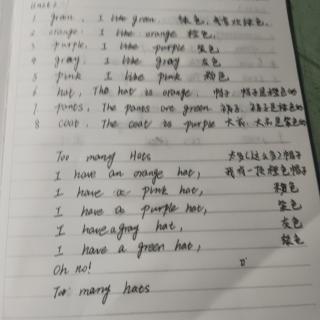 Unit 2
1 green, I like green 绿色, 我喜欢绿色.
2 orange. I like orange 橙色.
3 purple. I like purple 紫色.
4 gray. I like gray 灰色
5 pink I like pink 粉色
6 hat, The hat is orange. 帽子, 帽子是橙色的
7 pants, The pants are green 裤子, 裤子是绿色的
8 coat. The coat is purple 大衣, 大衣是紫色的
Too many Hats 太多(这么多)帽子
I have an orange hat, 我有一顶橙色帽子
I have a pink hat, 粉色
I have a purple hat, 紫色
I have a gray hat, 灰色
I have a green hat, 绿色
Oh no!
Too many hats